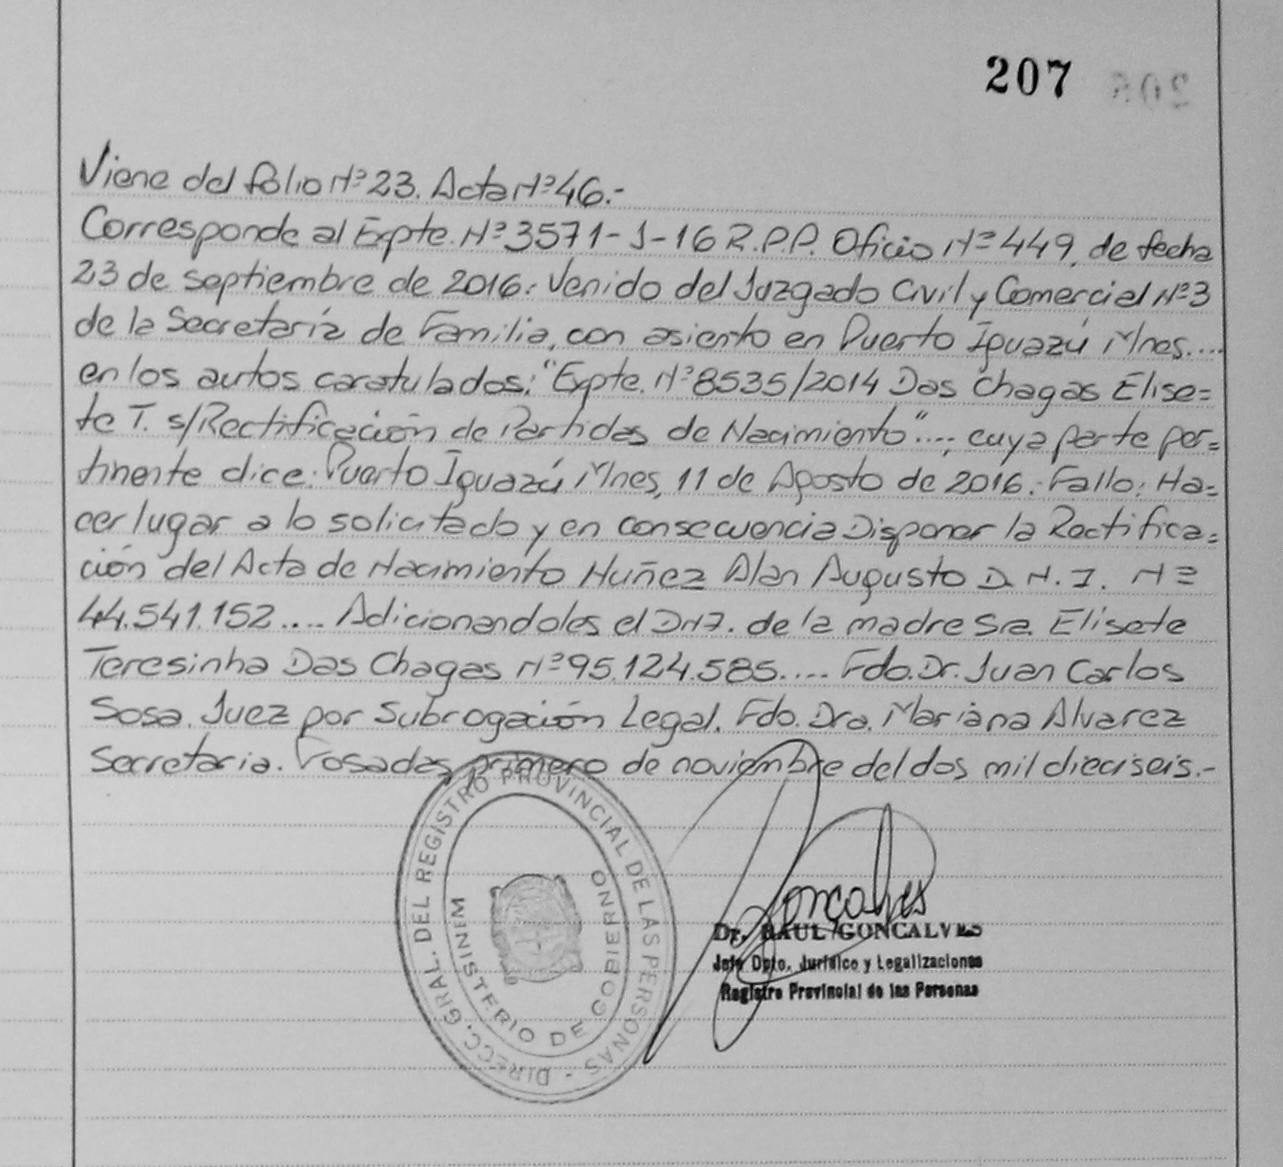 207 206
Viene del folio Nº 23. Acta Nº 46.-
Corresponde al Expte. Nº 3571-J-16 R.P.P. Oficio Nº 449, de fecha
23 de septiembre de 2016. Venido del Juzgado Civil y Comercial Nº 3
de la Secretaría de Familia, con asiento en Puerto Iguazú Mnes....
en los autos caratulados: "Expte. Nº 8535/2014 Das Chagas Elise=
te T. s/Rectificación de Partidas de Nacimiento"...; cuya parte per=
tinente dice: Puerto Iguazú Mnes, 11 de Agosto de 2016.- Fallo: Ha=
cer lugar a lo solicitado y en consecuencia Disponer la Rectifica=
ción del Acta de Nacimiento Nuñez Alan Augusto D.N.I. Nº
44.541.152.... Adicionandoles el DNI. de la madre Sra. Elisete
Teresinha Das Chagas Nº 95.124.585.... Fdo. Dr. Juan Carlos
Sosa. Juez por Subrogación Legal. Fdo. Dra. Mariana Alvarez
Secretaria. Posadas, primero de noviembre del dos mil dieciseis.-
DIRECC. GRAL. DEL REGISTRO PROVINCIAL DE LAS PERSONAS -
MINISTERIO DE GOBIERNO
Goncalves
Dr. RAUL GONCALVES
Jefe Dpto. Jurídico y Legalizaciones
Registro Provincial de las Personas